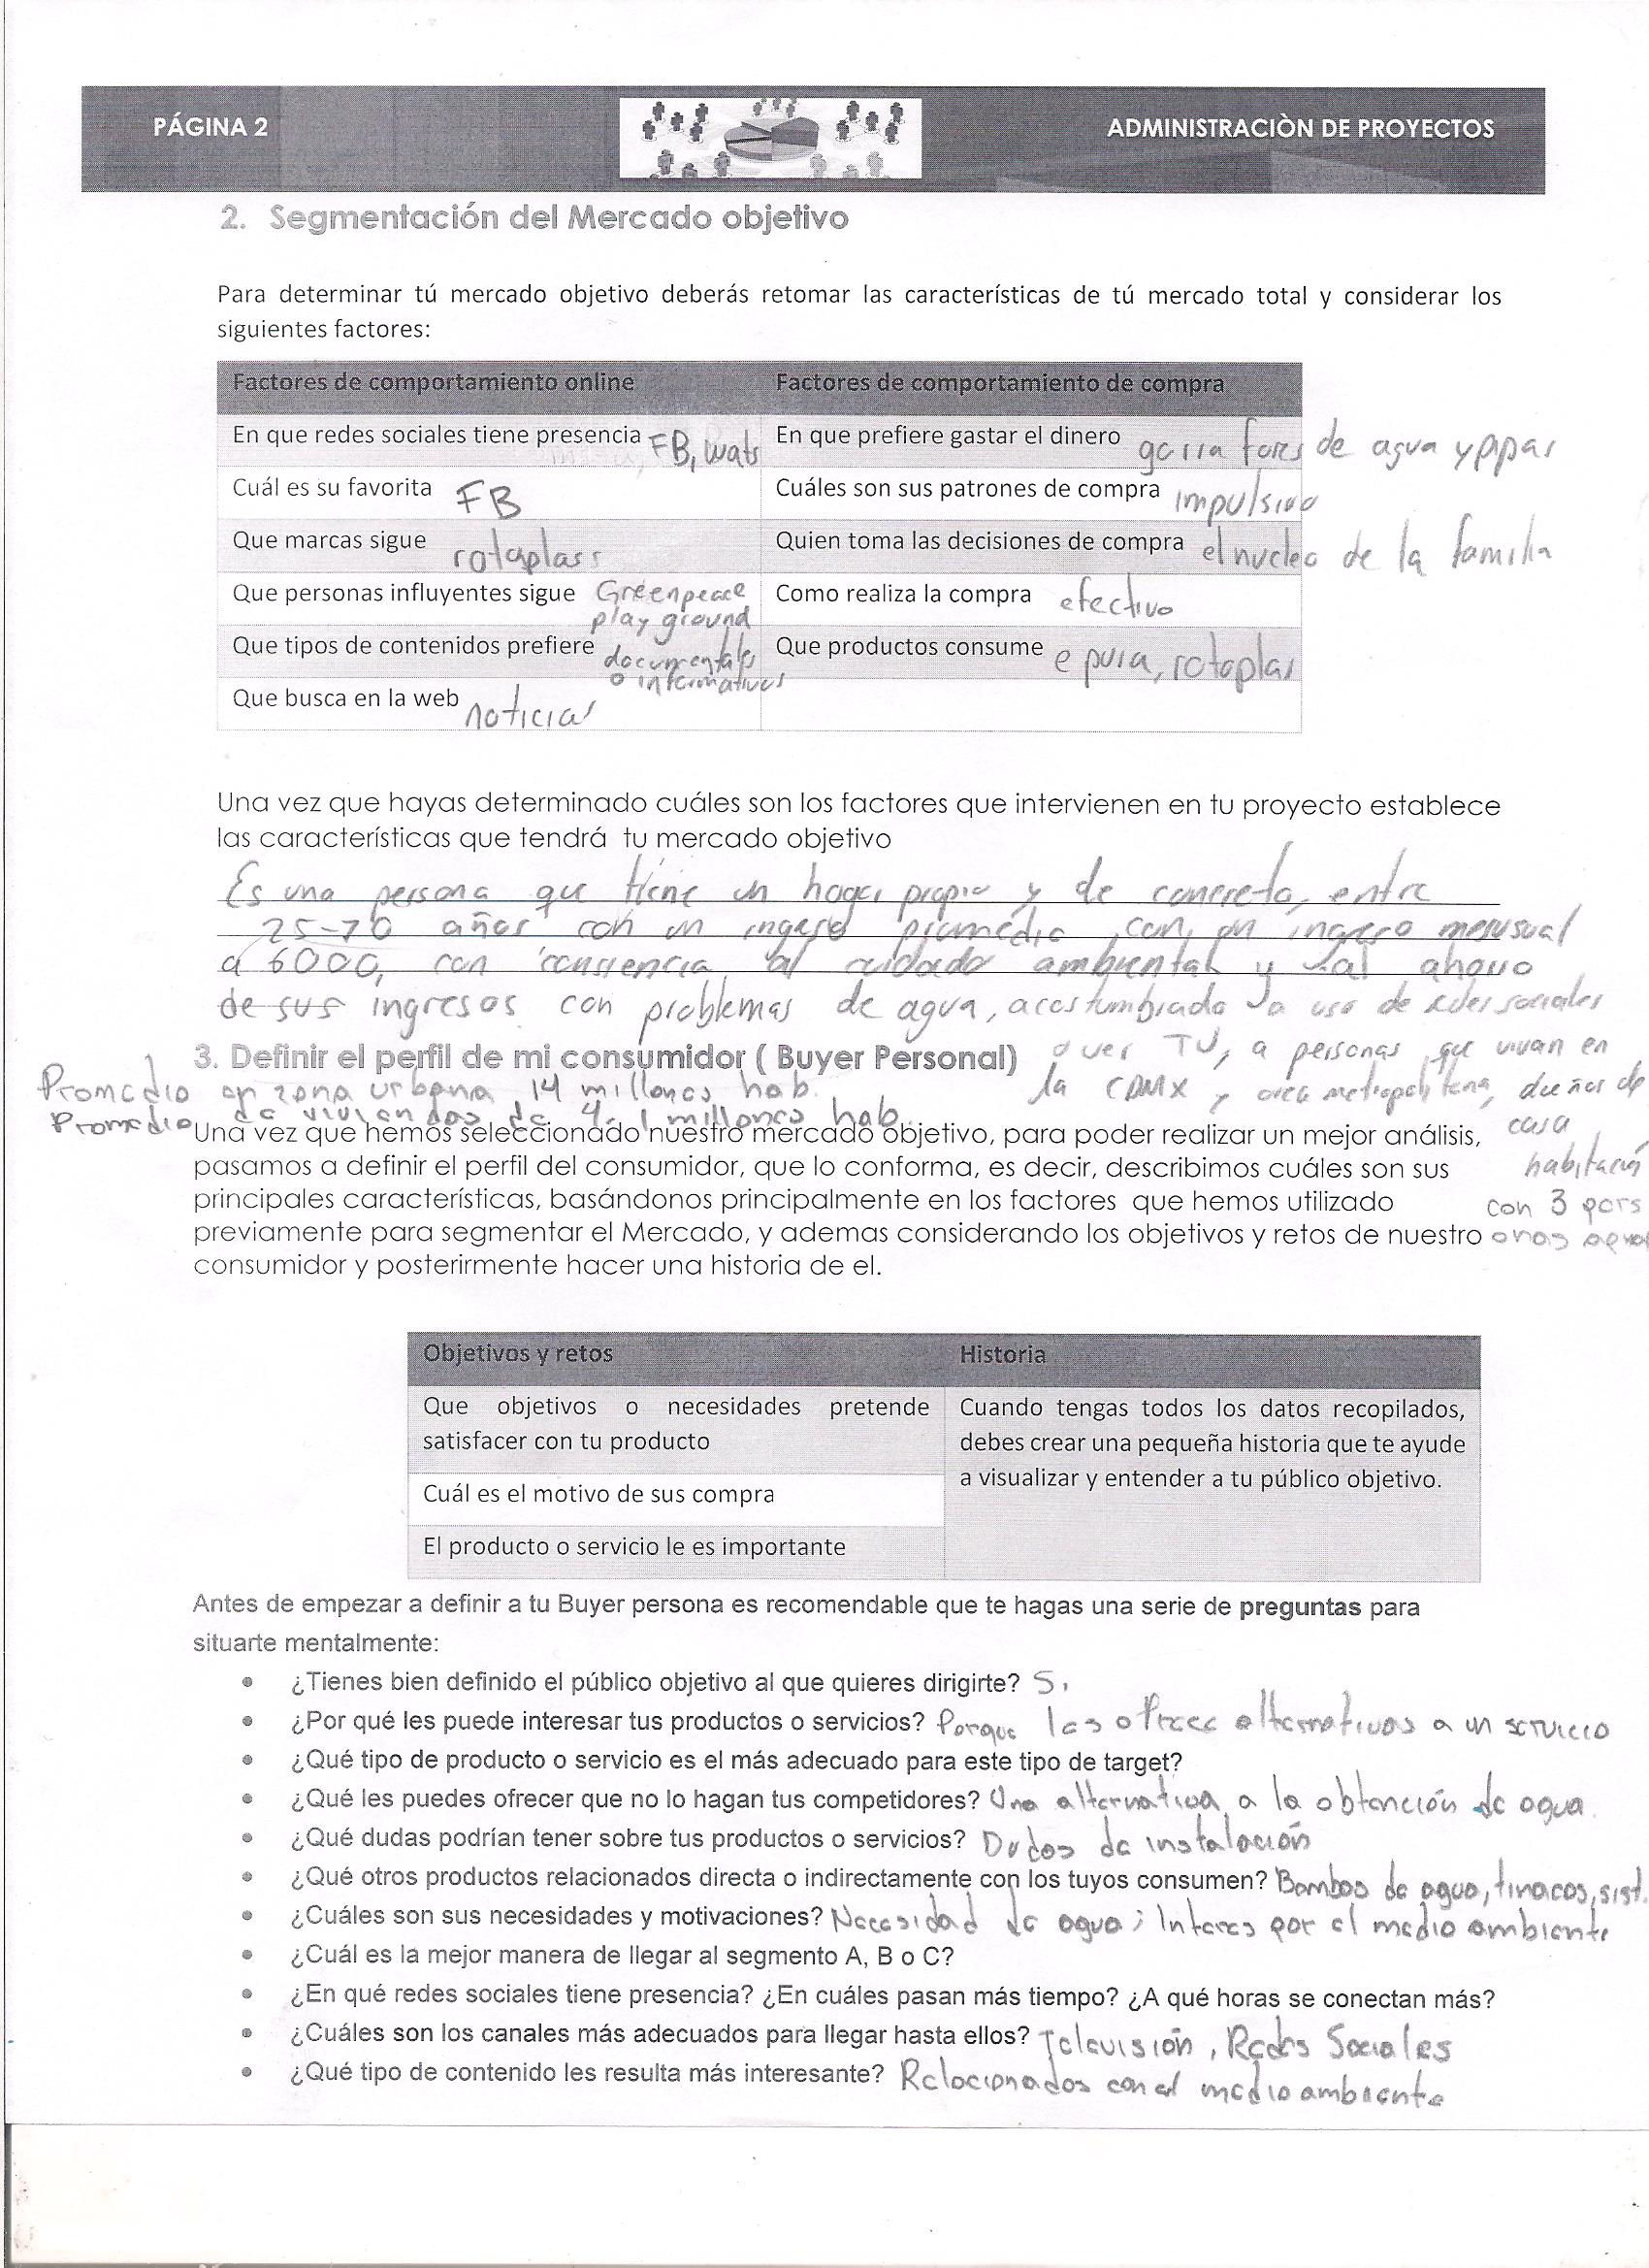 PÁGINA 2
ADMINISTRACIÒN DE PROYECTOS
2. Segmentación del Mercado objetivo
Para determinar tú mercado objetivo deberás retomar las características de tú mercado total y considerar los
siguientes factores:
Factores de comportamiento online Factores de comportamiento de compra
En que redes sociales tiene presencia FB, wats En que prefiere gastar el dinero garrafones de agua y pipas
Cuál es su favorita FB Cuáles son sus patrones de compra impulsivo
Que marcas sigue rotoplass Quien toma las decisiones de compra el nucleo de la familia
Que personas influyentes sigue Greenpeace Como realiza la compra efectivo
play ground
Que tipos de contenidos prefiere documentales Que productos consume e pura, rotoplas
o informativos
Que busca en la web noticias
Una vez que hayas determinado cuáles son los factores que intervienen en tu proyecto establece
las características que tendrá tu mercado objetivo
Es una persona que tiene un hogar propio y de concreto, entre
25-70 años con un ingreso promedio, con un ingreso mensual
a 6000, con consiencia al cuidado ambiental y al ahorro
de sus ingresos con problemas de agua, acostumbrado a uso de redes sociales
3. Definir el perfil de mi consumidor ( Buyer Personal) o ver TV, a personas que vivan en
la CDMX y area metropolitana, dueños de
casa
habitación
con 3 pers
onas
Promedio en zona urbana 14 millones hab.
Promedio de viviendas de 4.1 millones hab.
Una vez que hemos seleccionado nuestro mercado objetivo, para poder realizar un mejor análisis,
pasamos a definir el perfil del consumidor, que lo conforma, es decir, describimos cuáles son sus
principales características, basándonos principalmente en los factores que hemos utilizado
previamente para segmentar el Mercado, y ademas considerando los objetivos y retos de nuestro
consumidor y posterirmente hacer una historia de el.
Objetivos y retos Historia
Que objetivos o necesidades pretende
satisfacer con tu producto
Cuál es el motivo de sus compra
El producto o servicio le es importante
Cuando tengas todos los datos recopilados,
debes crear una pequeña historia que te ayude
a visualizar y entender a tu público objetivo.
Antes de empezar a definir a tu Buyer persona es recomendable que te hagas una serie de preguntas para
situarte mentalmente:
• ¿Tienes bien definido el público objetivo al que quieres dirigirte? Si
• ¿Por qué les puede interesar tus productos o servicios? Porque les ofrece alternativas a un servicio
• ¿Qué tipo de producto o servicio es el más adecuado para este tipo de target?
• ¿Qué les puedes ofrecer que no lo hagan tus competidores? Una alternativa a la obtención de agua.
• ¿Qué dudas podrían tener sobre tus productos o servicios? Dudas de instalación
• ¿Qué otros productos relacionados directa o indirectamente con los tuyos consumen? Bombas de agua, tinacos, sist.
• ¿Cuáles son sus necesidades y motivaciones? Necesidad de agua; Interes por el medio ambiente
• ¿Cuál es la mejor manera de llegar al segmento A, B o C?
• ¿En qué redes sociales tiene presencia? ¿En cuáles pasan más tiempo? ¿A qué horas se conectan más?
• ¿Cuáles son los canales más adecuados para llegar hasta ellos? Television, Redes Sociales
• ¿Qué tipo de contenido les resulta más interesante? Relacionados con el medio ambiente